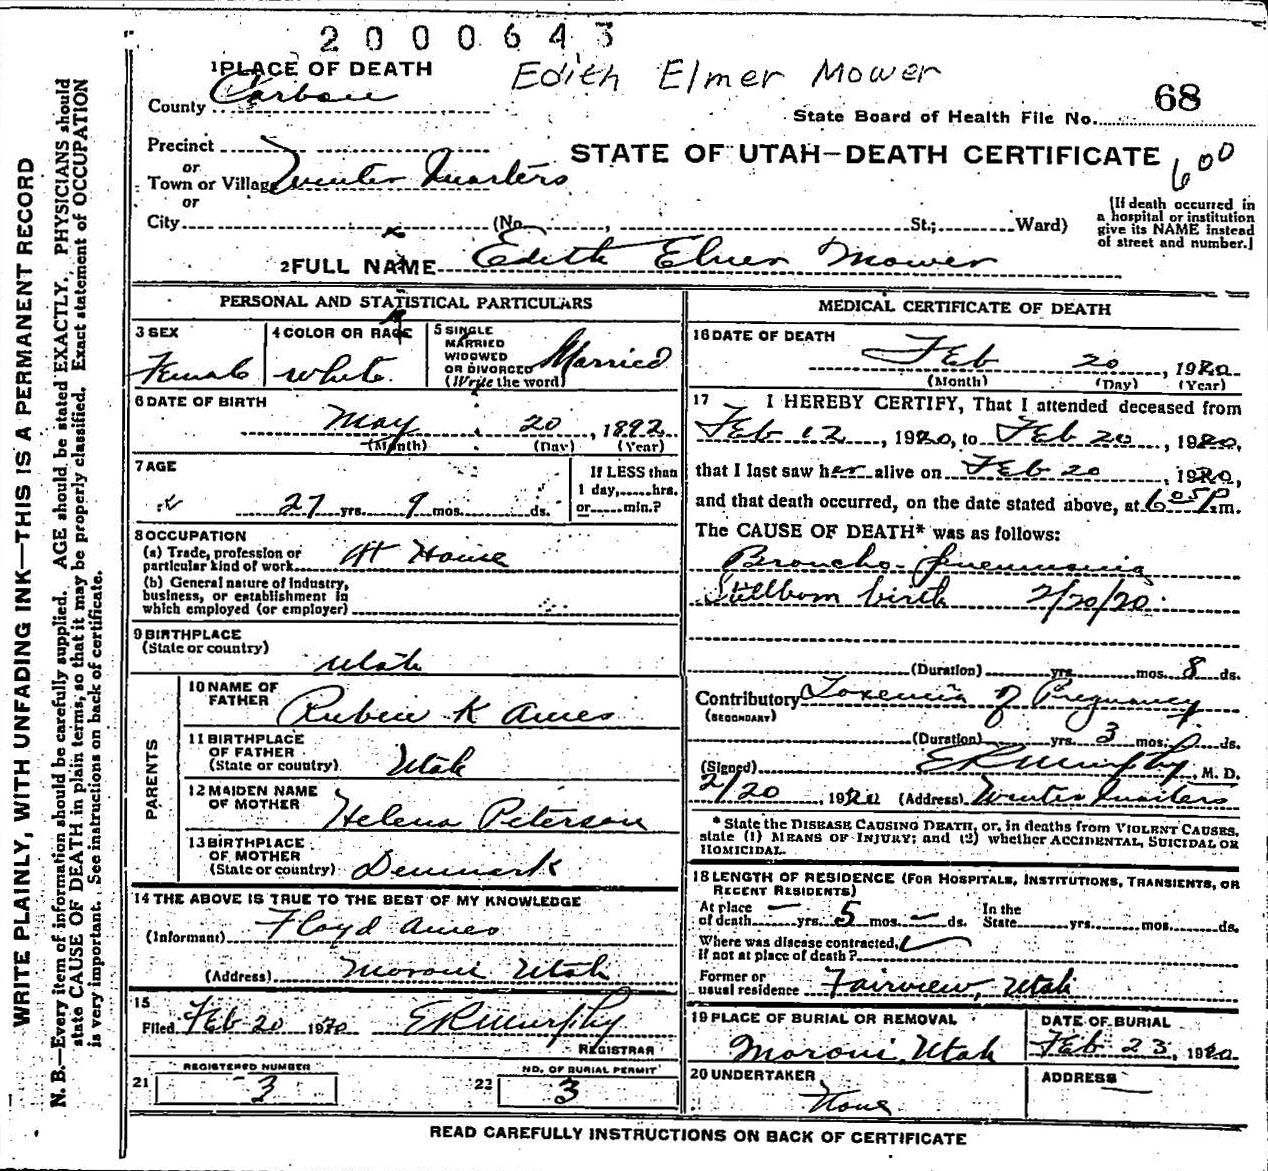 2000643
Edith Elmer Mower
1 PLACE OF DEATH
County Carbon
68
State Board of Health File No.
Precinct
or
Town or Village Winter Quarters
or
City (No. , St.; Ward)
STATE OF UTAH—DEATH CERTIFICATE
600
[If death occurred in
a hospital or institution
give its NAME instead
of street and number.]
2 FULL NAME Edith Elmer Mower
PERSONAL AND STATISTICAL PARTICULARS
3 SEX
Female
4 COLOR OR RACE
white
5 SINGLE
MARRIED
WIDOWED
OR DIVORCED
(Write the word)
Married
6 DATE OF BIRTH
May 20, 1892
(Month) (Day) (Year)
7 AGE
27 yrs. 9 mos. ds.
If LESS than
1 day, hrs.
or min.?
8 OCCUPATION
(a) Trade, profession or
particular kind of work At Home
(b) General nature of industry,
business, or establishment in
which employed (or employer)
9 BIRTHPLACE
(State or country)
Utah
PARENTS
10 NAME OF
FATHER
Rubin K Ames
11 BIRTHPLACE
OF FATHER
(State or country) Utah
12 MAIDEN NAME
OF MOTHER
Helena Peterson
13 BIRTHPLACE
OF MOTHER
(State or country) Denmark
14 THE ABOVE IS TRUE TO THE BEST OF MY KNOWLEDGE
(Informant) Floyd Ames
(Address) Moroni Utah
15
Filed Feb 20 1920 ERMurphy
REGISTRAR
REGISTERED NUMBER
21 3
NO. OF BURIAL PERMIT
22 3
MEDICAL CERTIFICATE OF DEATH
16 DATE OF DEATH
Feb 20, 1920
(Month) (Day) (Year)
17 I HEREBY CERTIFY, That I attended deceased from
Feb 12, 1920, to Feb 20, 1920,
that I last saw her alive on Feb 20, 1920,
and that death occurred, on the date stated above, at 6 05 P.m.
The CAUSE OF DEATH* was as follows:
Broncho-pneumonia
Stillborn birth 2/20/20
(Duration) yrs. mos. 8 ds.
Contributory Toxemia of Pregnancy
(SECONDARY)
(Duration) yrs. 3 mos. ds.
(Signed) ERMurphy, M. D.
2/20, 1920 (Address) Winter Quarters
* State the DISEASE CAUSING DEATH, or, in deaths from VIOLENT CAUSES,
state (1) MEANS OF INJURY; and (2) whether ACCIDENTAL, SUICIDAL OR
HOMICIDAL.
18 LENGTH OF RESIDENCE (FOR HOSPITALS, INSTITUTIONS, TRANSIENTS, OR
RECENT RESIDENTS)
At place
of death — yrs. 5 mos. — ds.
In the
State yrs. mos. ds.
Where was disease contracted,
if not at place of death?
Former or
usual residence Fairview, Utah
19 PLACE OF BURIAL OR REMOVAL
Moroni Utah
DATE OF BURIAL
Feb 23, 1920
20 UNDERTAKER
None
ADDRESS
READ CAREFULLY INSTRUCTIONS ON BACK OF CERTIFICATE
WRITE PLAINLY, WITH UNFADING INK—THIS IS A PERMANENT RECORD
N. B.—Every item of information should be carefully supplied. AGE should be stated EXACTLY. PHYSICIANS should
state CAUSE OF DEATH in plain terms, so that it may be properly classified. Exact statement of OCCUPATION
is very important. See instructions on back of certificate.